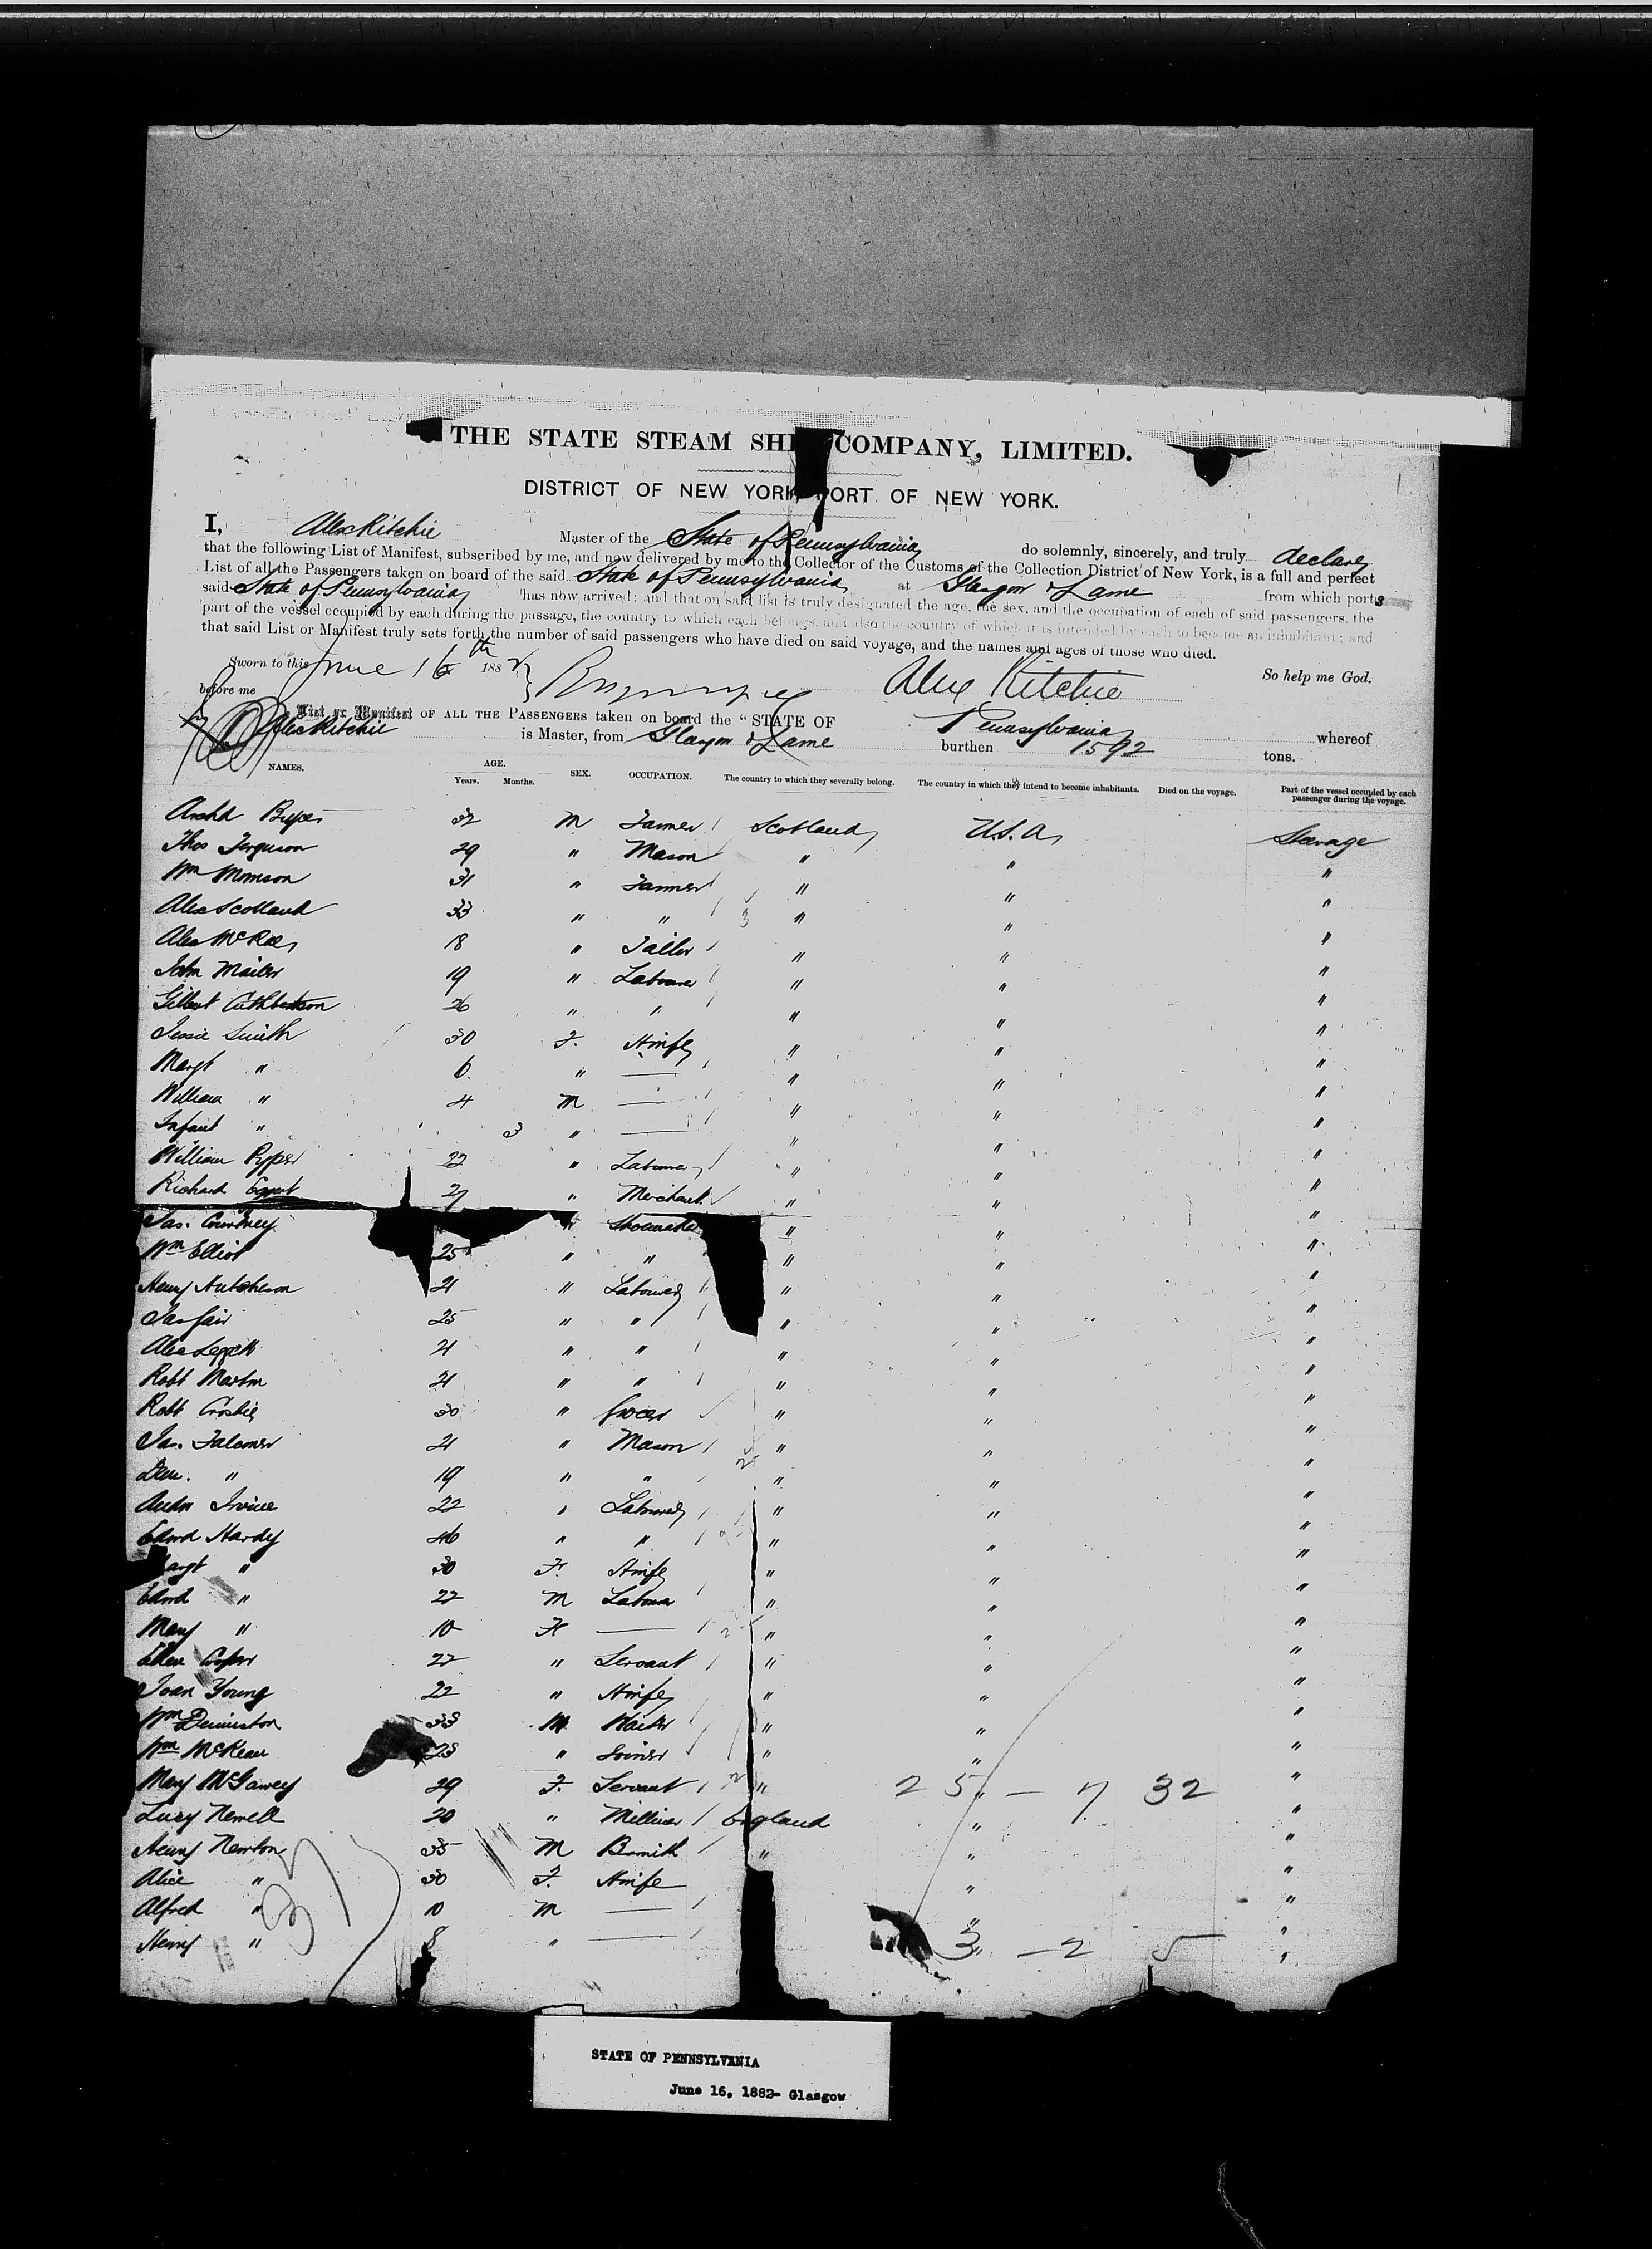 THE STATE STEAM SHI COMPANY, LIMITED.
DISTRICT OF NEW YORK, PORT OF NEW YORK.
I, Alex Ritchie Master of the State of Pennsylvania do solemnly, sincerely, and truly declare
that the following List of Manifest, subscribed by me, and now delivered by me to the Collector of the Customs of the Collection District of New York, is a full and perfect
List of all the Passengers taken on board of the said State of Pennsylvania at Glasgow & Larne from which ports
said State of Pennsylvania has now arrived; and that on said list is truly designated the age, the sex, and the occupation of each of said passengers, the
part of the vessel occupied by each during the passage, the country to which each belongs, and also the country of which it is intended by each to become an inhabitant; and
that said List or Manifest truly sets forth the number of said passengers who have died on said voyage, and the names and ages of those who died.
Sworn to this June 16th 1882 Alex Ritchie So help me God.
before me
List or Manifest OF ALL THE PASSENGERS taken on board the "STATE OF Pennsylvania whereof
Alex Ritchie is Master, from Glasgow & Larne burthen 1592 tons.
NAMES. AGE. Years. Months. SEX. OCCUPATION. The country to which they severally belong. The country in which they intend to become inhabitants. Died on the voyage. Part of the vessel occupied by each passenger during the voyage.
Archd 32 M Farmer Scotland U.S.A. Steerage
Thos Ferguson 29 " Mason " " "
Wm Morrison 31 " Farmer " " "
Alex Scotland 33 " " " " "
Alex McRae 18 " Tailor " " "
John Mailer 19 " Labourer " " "
Gilbert Cuthbertson 26 " " " " "
Jessie Smith 30 F. H wife " " "
Margt " 6 " — " " "
William " 4 M — " " "
Infant " 3 " — " " "
William Pyper 22 " Labourer " " "
Richard 27 " Merchant " " "
Jas. Courtney " Shoemaker " " "
Wm Elliot 25 " " " " "
Henry Hutcheson 21 " Labourer " " "
Jas Gair 25 " " " " "
Alex Leggett 21 " " " " "
Robt Martin 21 " " " " "
Robt Crosbie 30 " Grocer " " "
Jas. Falconer 21 " Mason " " "
" 19 " " " " "
Andw Irvine 22 " Labourer " " "
Edwd Hardy 46 " " " " "
Margt " 30 F. H wife " " "
Edwd " 22 M Labourer " " "
Mary " 10 F — " " "
Ellen 22 " Servant " " "
Joan Young 22 " H wife " " "
Wm Denniston 33 M Waiter " " "
Wm McKean 23 " Joiner " " "
Mary McGarvey 29 F. Servant " " "
25 — 7 32
Lucy Newell 20 " Milliner England " "
Henry Newton 35 M B smith " " "
Alice " 30 F. H wife " " "
Alfred " 10 M — " "
Henry " 8 " — " "
3 — 2 5
STATE OF PENNSYLVANIA
June 16, 1882- Glasgow